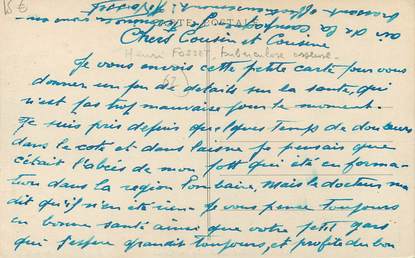 15 €
CARTE POSTALE
Chers Cousin et Cousine
Henri FOSSET, tuberculose osseuse
62
Je vous envois cette petite carte pour vous
donner un peu de détails sur la santé, qui
n'est pas trop mauvaise pour le moment.
Je suis pris depuis quelques temps de douleurs
dans le coté et dans l'aine je pensais que
c'était l'abcès de mon qui été en forma-
tion dans la region lombaire, Mais le docteur ma
dit qu'il n'en été rien. Je vous pense toujours
en bonne santé ainsi que votre petit gars
qui j'espère grandit toujours, et profite du bon